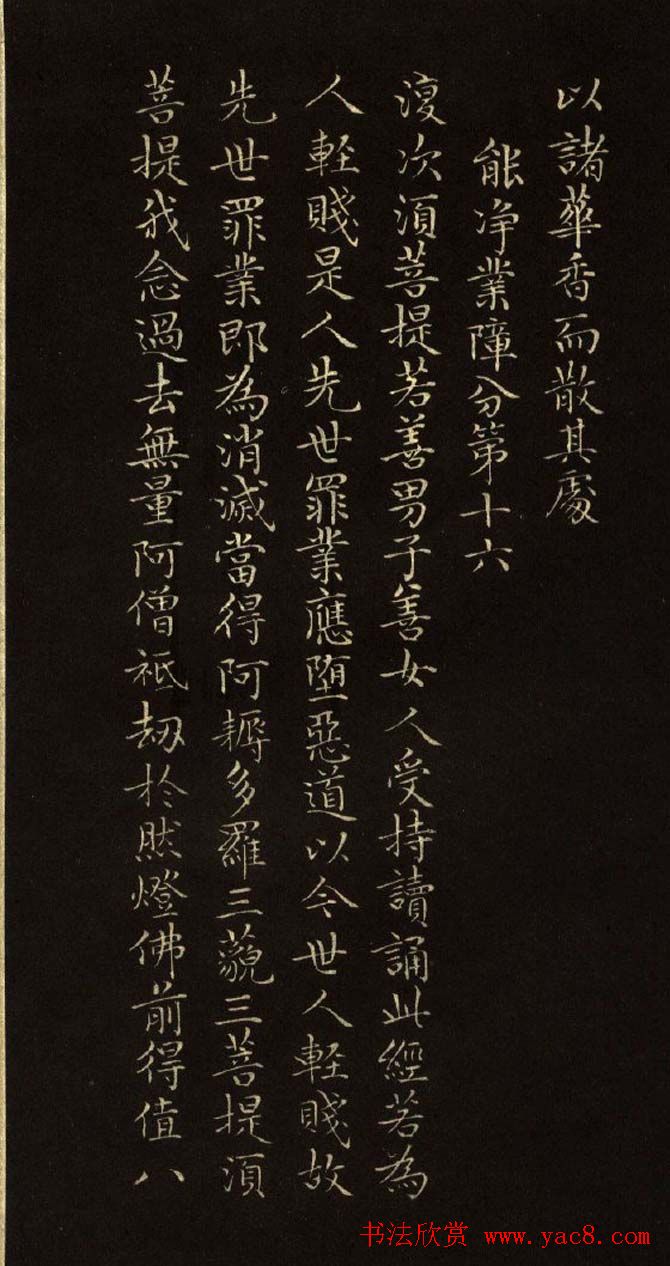 以諸華香而散其處
能净業障分第十六
復次須菩提若善男子善女人受持讀誦此經若為
人輕賤是人先世罪業應墮惡道以今世人輕賤故
先世罪業即為消滅當得阿耨多羅三藐三菩提須
菩提我念過去無量阿僧祇劫於然燈佛前得值八
书法欣赏 www.yac8.com